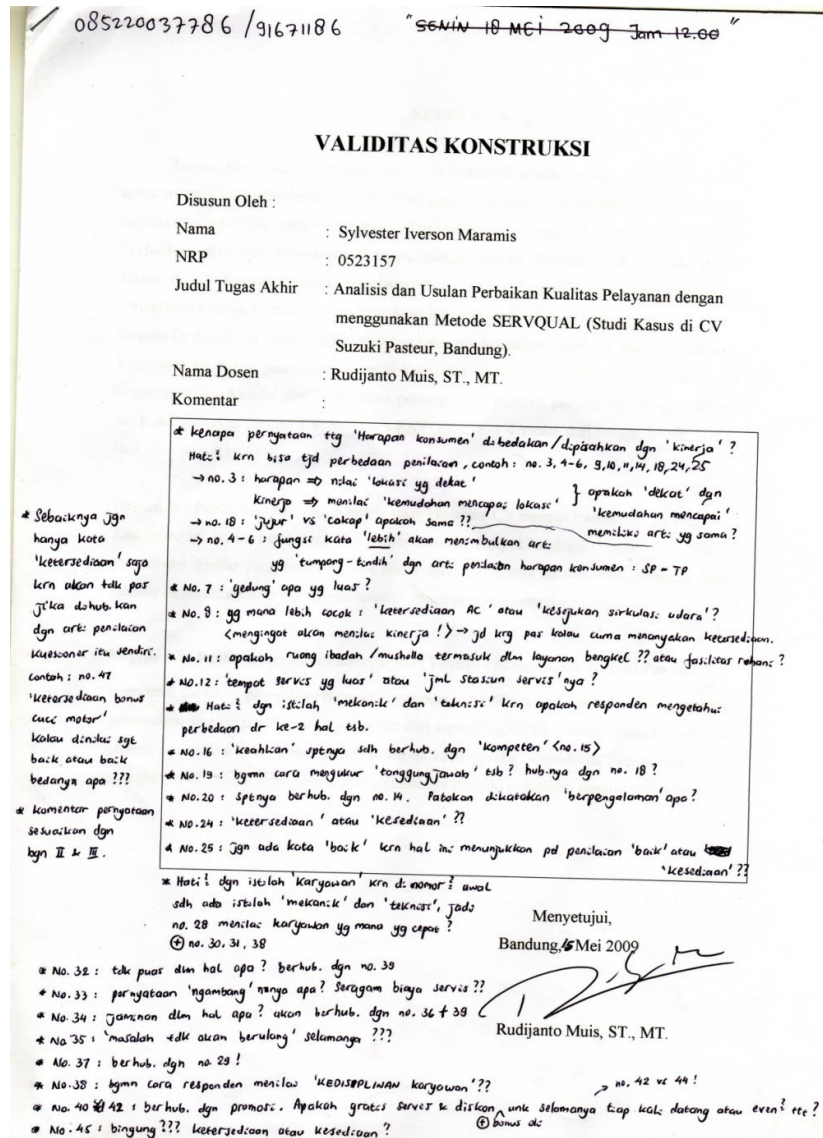 085220037786 / 91671186
"SENIN 18 MEI 2009 Jam 12.00"
VALIDITAS KONSTRUKSI
Disusun Oleh :
Nama : Sylvester Iverson Maramis
NRP : 0523157
Judul Tugas Akhir : Analisis dan Usulan Perbaikan Kualitas Pelayanan dengan
menggunakan Metode SERVQUAL (Studi Kasus di CV
Suzuki Pasteur, Bandung).
Nama Dosen : Rudijanto Muis, ST., MT.
Komentar :
* kenapa pernyataan ttg 'Harapan konsumen' dibedakan/dipisahkan dgn 'kinerja' ?
Hati² krn bisa tjd perbedaan penilaian, contoh : no. 3, 4-6, 9,10,11,14,18,24,25
→ no. 3 : harapan ⇒ nilai 'lokasi yg dekat'
kinerja ⇒ menilai 'kemudahan mencapai lokasi'
} apakah 'dekat' dgn
'kemudahan mencapai'
memiliki arti yg sama ?
→ no. 18 : 'jujur' vs 'cakap' apakah sama ??
→ no. 4-6 : fungsi kata 'lebih' akan menimbulkan arti
yg 'tumpang-tindih' dgn arti penilaian harapan konsumen : SP - TP
* No. 7 : 'gedung' apa yg luas ?
* No. 9 : yg mana lebih cocok : 'ketersediaan AC' atau 'kesejukan sirkulasi udara' ?
<mengingat akan menilai kinerja !> → jd krg pas kalau cuma menanyakan ketersediaan.
* No. 11 : apakah ruang ibadah /musholla termasuk dlm layanan bengkel ?? atau fasilitas rohani ?
* No. 12 : 'tempat servis yg luas' atau 'jml stasiun servis'nya ?
* Hati² dgn istilah 'mekanik' dan 'teknisi' krn apakah responden mengetahui
perbedaan dr ke-2 hal tsb.
* No. 16 : 'keahlian' sptnya sdh berhub. dgn 'kompeten' <no. 15>
* No. 19 : bgmn cara mengukur 'tanggung jawab' tsb ? hub.nya dgn no. 18 ?
* No. 20 : sptnya berhub. dgn no. 14. Patokan dikatakan 'berpengalaman' apa ?
* No. 24 : 'ketersediaan' atau 'kesediaan' ??
* No. 25 : Jgn ada kata 'baik' krn hal ini menunjukkan pd penilaian 'baik' atau
'kesediaan' ??
* Sebaiknya jgn
hanya kata
'ketersediaan' saja
krn akan tdk pas
jika dihub.kan
dgn arti penilaian
kuesioner itu sendiri.
contoh : no. 47
'ketersediaan bonus
cuci motor'
kalau dinilai sgt
baik atau baik
bedanya apa ???
* komentar pernyataan
sesuaikan dgn
bgn II & III.
* Hati² dgn istilah 'karyawan' krn di nomor² awal
sdh ada istilah 'mekanik' dan 'teknisi', jadi
no. 28 menilai karyawan yg mana yg cepat ?
⊕ no. 30, 31, 38
Menyetujui,
Bandung, 15 Mei 2009
Rudijanto Muis, ST., MT.
* No. 32 : tdk puas dlm hal apa ? berhub. dgn no. 39
* No. 33 : pernyataan 'ngambang' nanya apa ? Seragam biaya servis ??
* No. 34 : Jaminan dlm hal apa ? akan berhub. dgn no. 36 + 39
* No 35 : 'masalah tdk akan berulang' selamanya ???
* No. 37 : berhub. dgn no. 29 !
* No. 38 : bgmn cara responden menilai 'KEDISIPLINAN karyawan' ??
→ no. 42 vs 44 !
* No. 40 42 : berhub. dgn promosi. Apakah gratis servis & diskon unk selamanya tiap kali datang atau even² ttt ?
⊕ bonus oli
* No. 45 : bingung ??? ketersediaan atau kesediaan ?